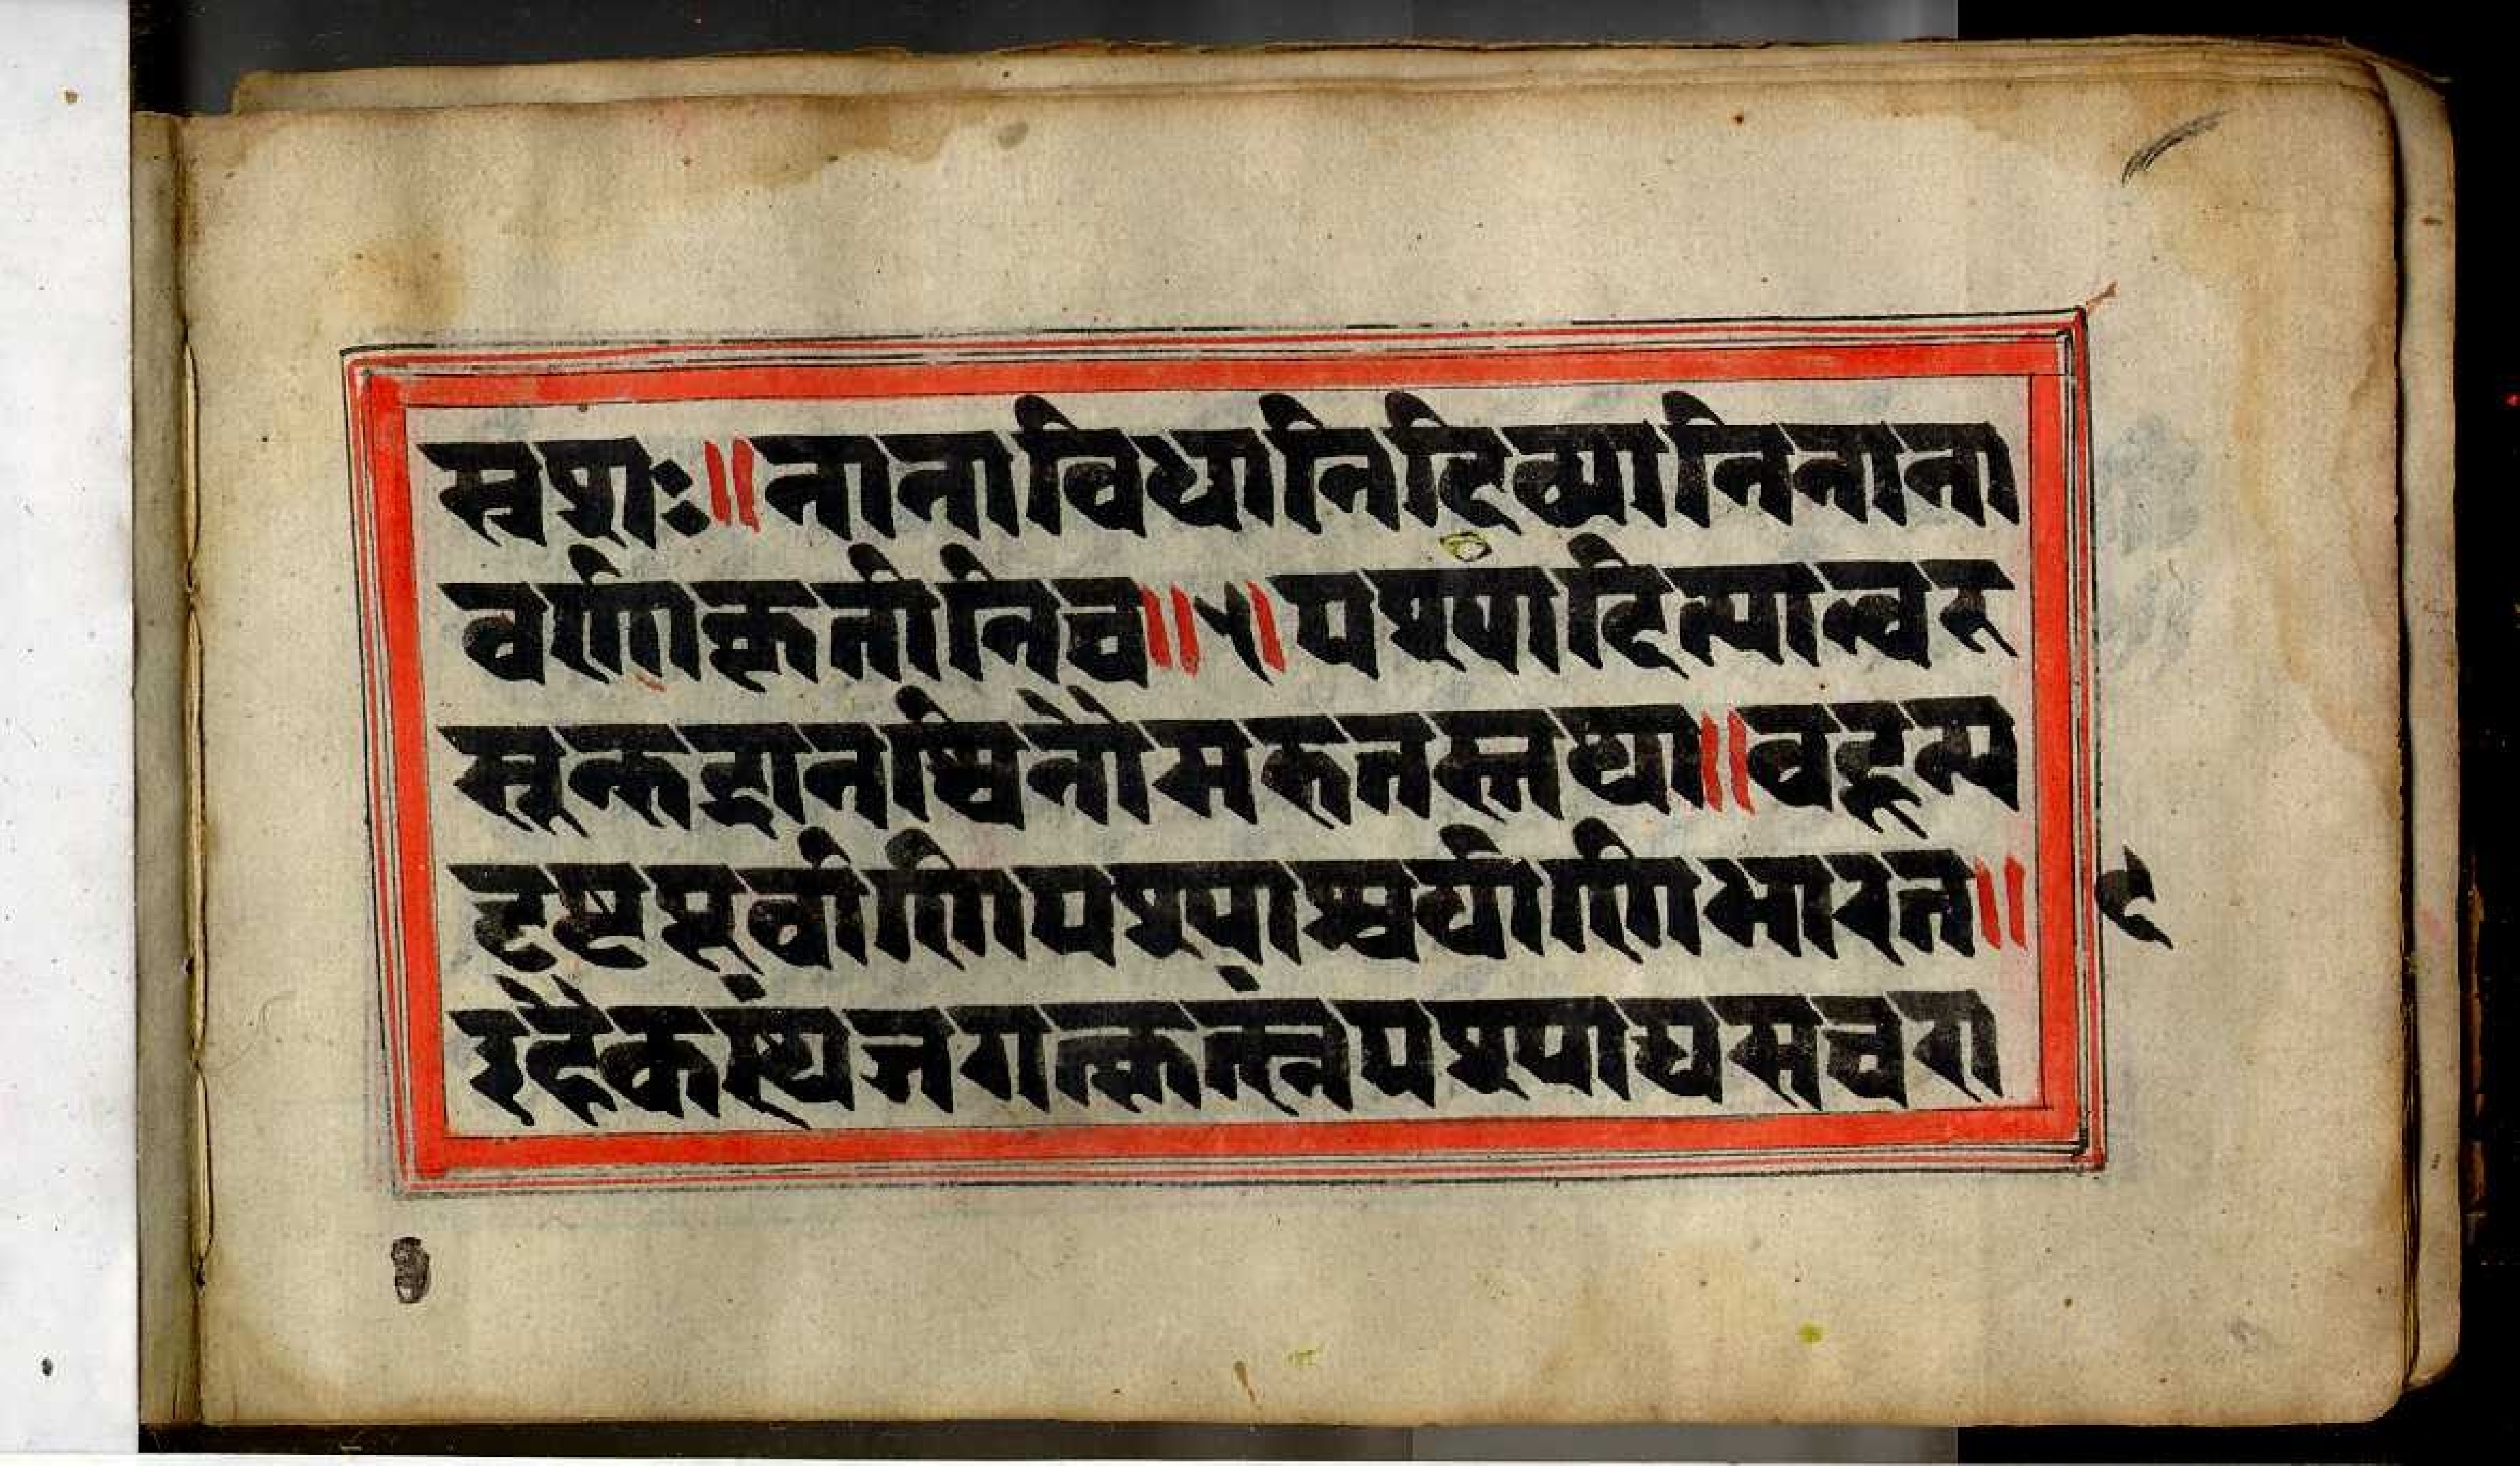 स्रशः॥नानाविधानिदिव्यानिनाना
वर्णाकृतीनिच॥५॥पश्यादित्यान्वसू
न्रुद्रानश्विनौमरुतस्तथा॥वहून्य
दृष्टपूर्वाणिपश्याश्चर्याणिभारत॥
इहैकस्थंजगत्कृत्स्नंपश्याद्यसचरा